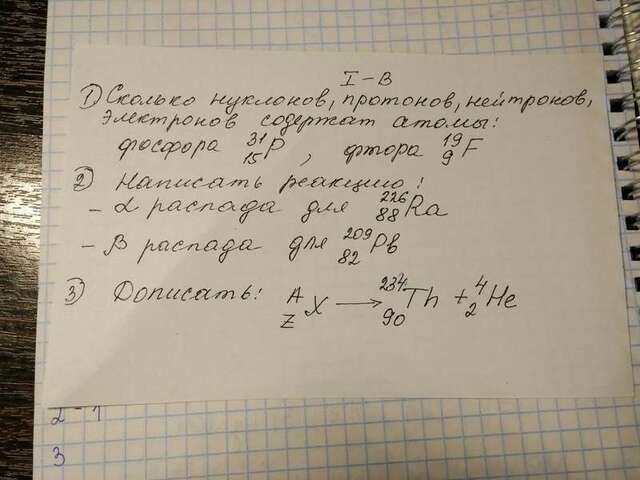 I-В
1) Сколько нуклонов, протонов, нейтронов,
электронов содержат атомы:
фосфора ³¹₁₅P, фтора ¹⁹₉F
2) Написать реакцию:
- α распада для ²²⁶₈₈Ra
- β распада для ²⁰⁹₈₂Pb
3) Дописать: ᴬ_Z X → ²³⁴₉₀Th + ⁴₂He
2-1
3